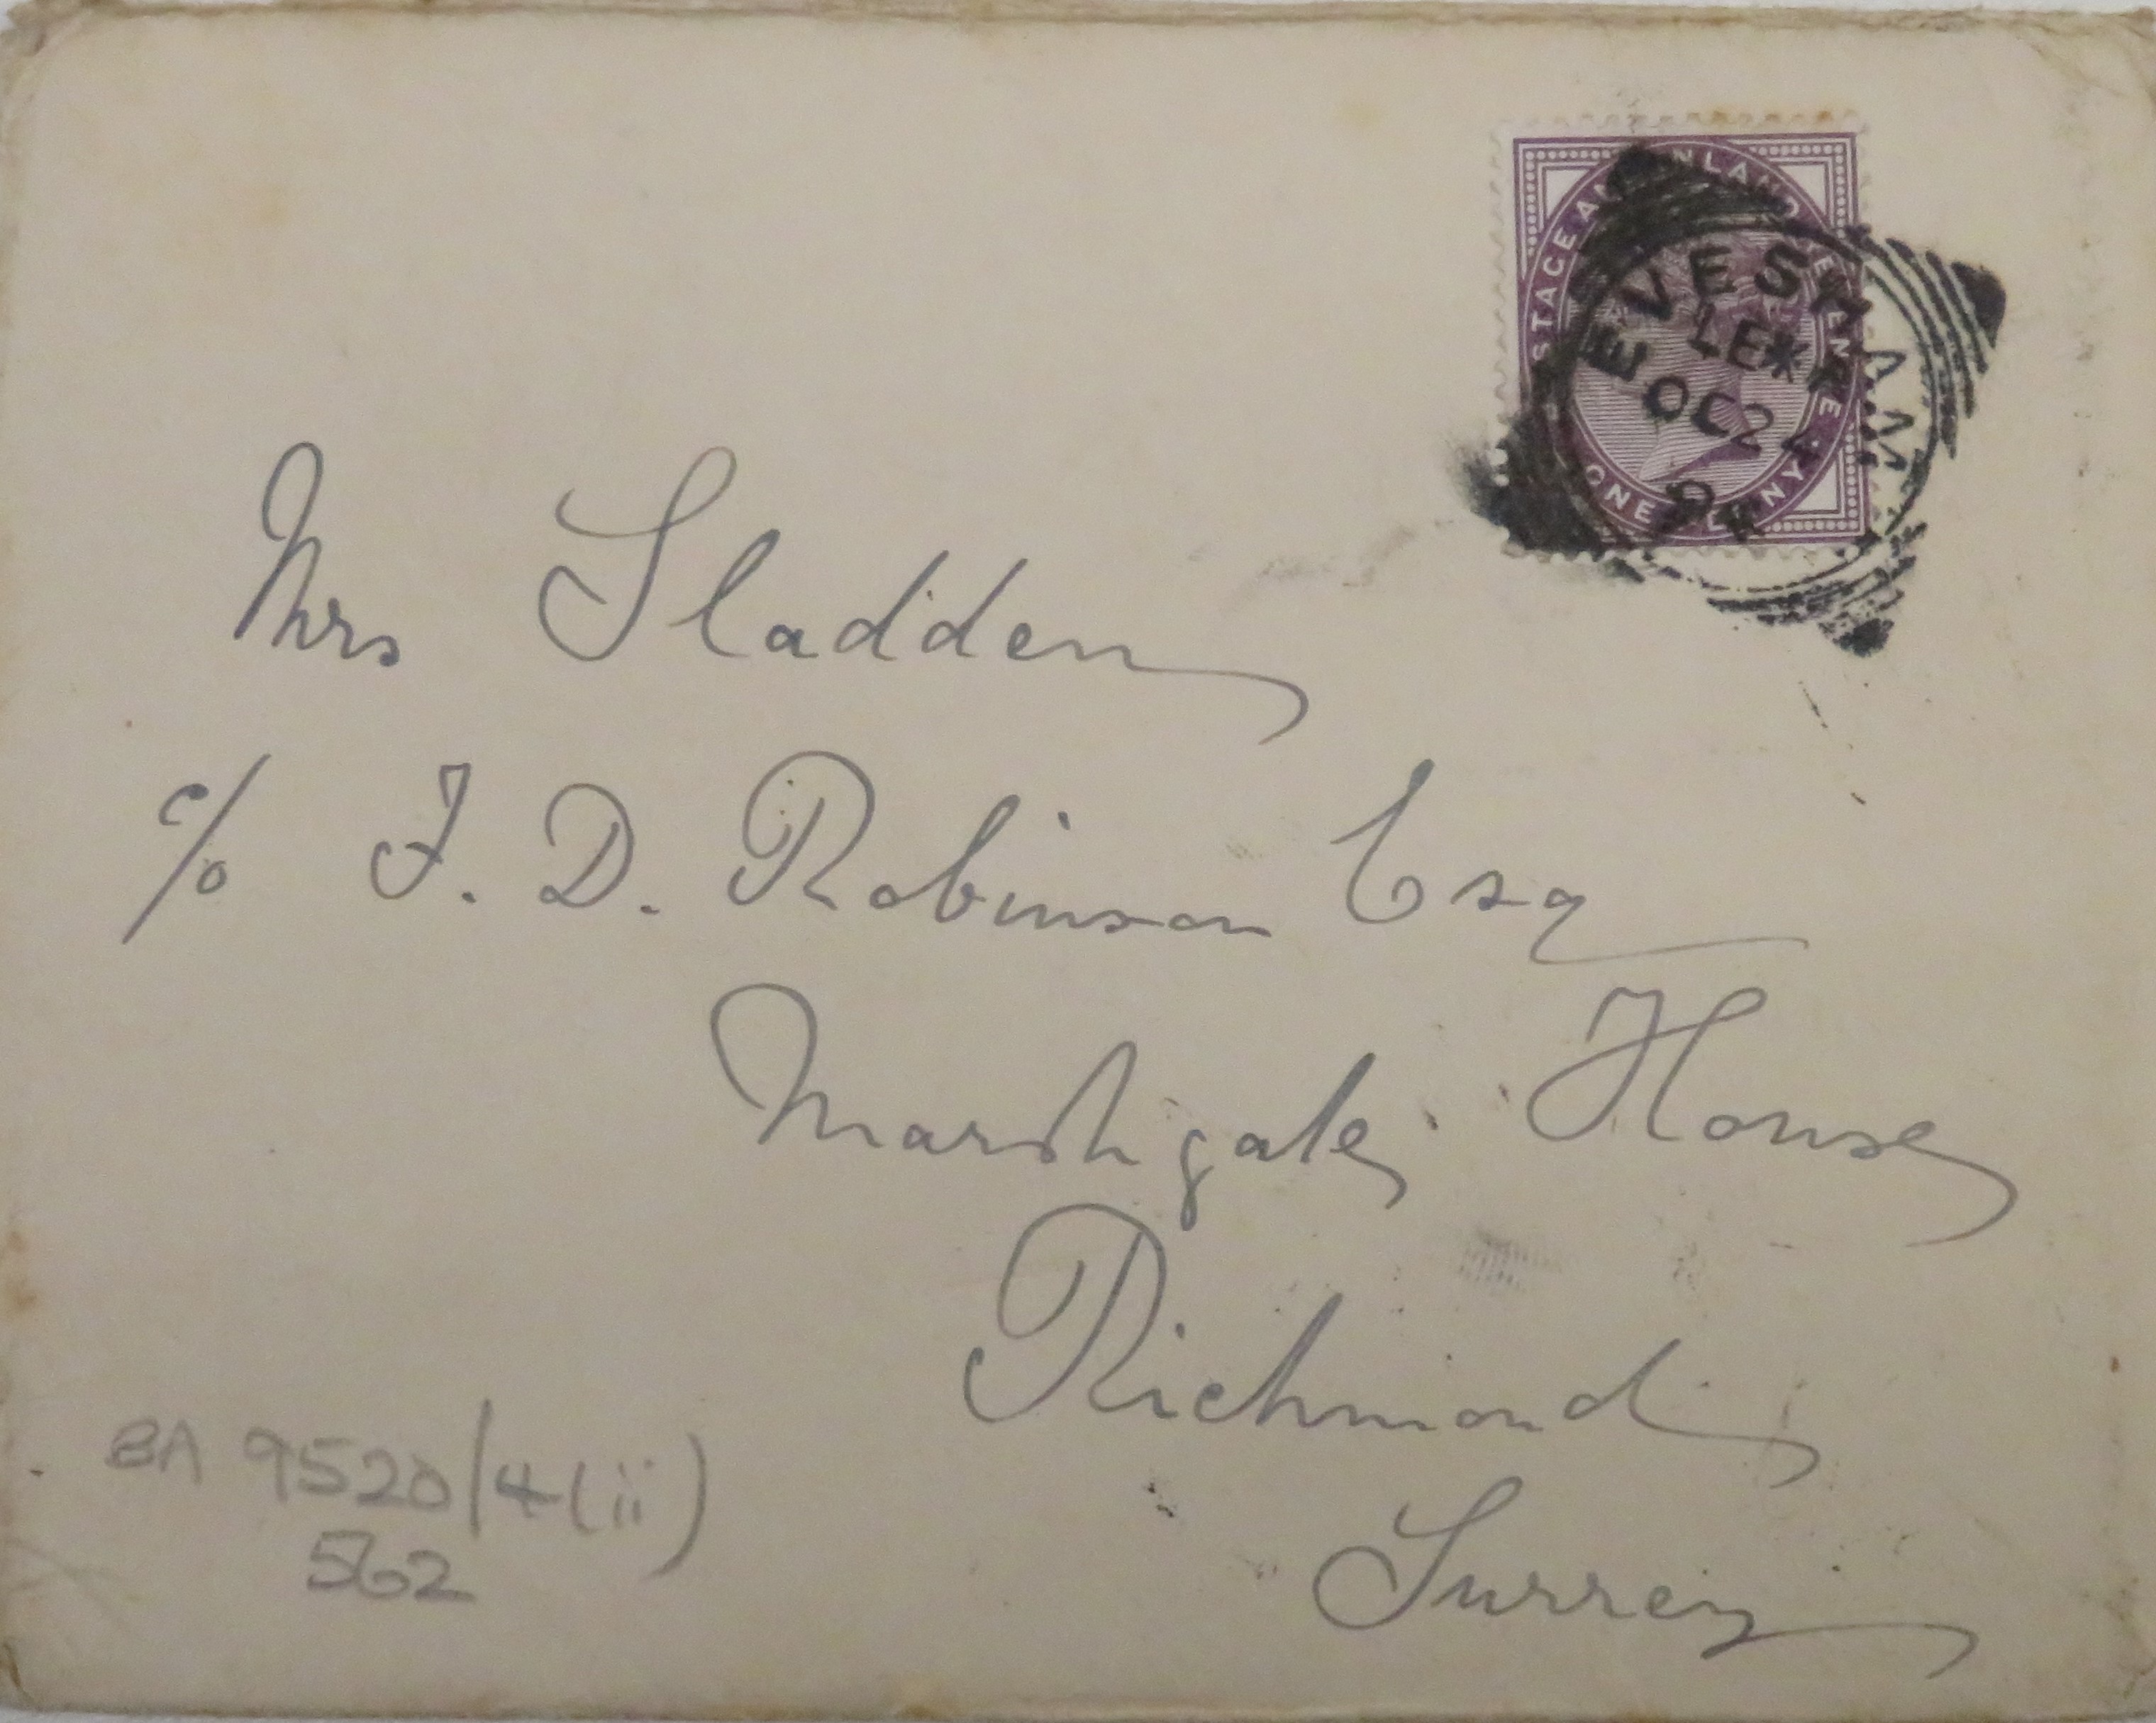 POSTAGE AND INLAND REVENUE
ONE PENNY
EVESHAM
OC 24
94
Mrs Sladden
c/o J. D. Robinson Esq
Marshgate House
Richmond
Surrey
BA 9520/4(ii)
562